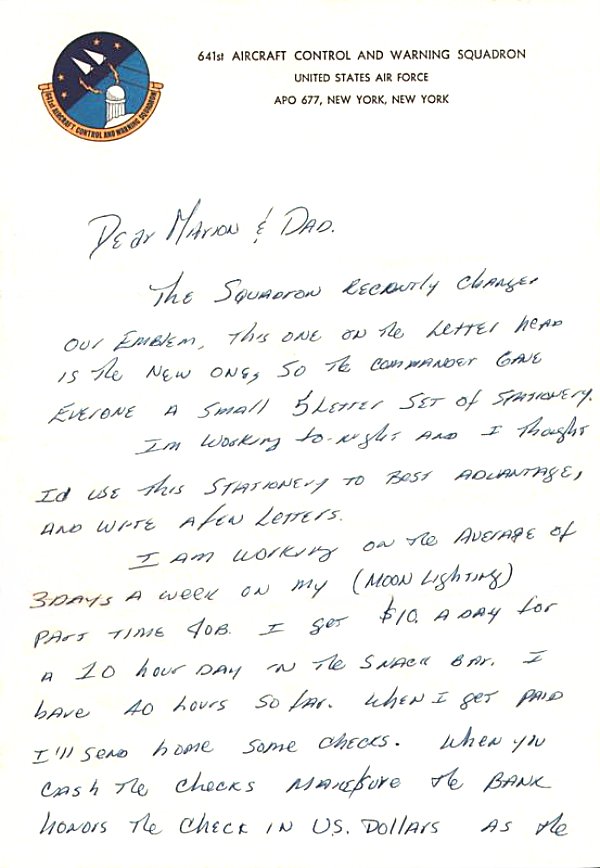 641st AIRCRAFT CONTROL AND WARNING SQUADRON
UNITED STATES AIR FORCE
APO 677, NEW YORK, NEW YORK
641ST AIRCRAFT CONTROL AND WARNING SQUADRON
Dear Marion & Dad.
The Squadron recently changed
our Emblem, this one on the letter head
is the new one, so the commander gave
everone a small 5 letter set of stationery.
Im working to-night and I thought
Id use this stationery to best advantage,
and write a few letters.
I am working on the average of
3 days a week on my (moon lighting)
part time job. I get $10. a day for
a 10 hour day in the snack bar. I
have 40 hours so far. When I get paid
I'll send home some checks. When you
cash the checks make sure the bank
honors the check in U.S. Dollars as the